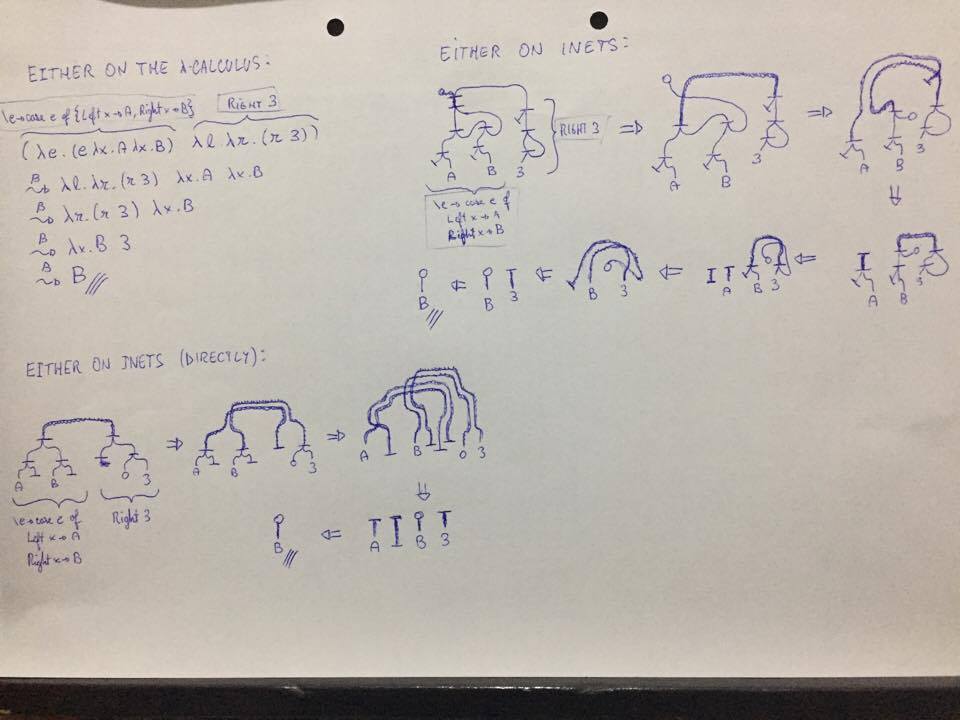 EITHER ON THE λ-CALCULUS:
\e→case e of {Left x→A, Right x→B}
RIGHT 3
(λe.(e λx.A λx.B) λl.λr.(r 3))
β
~> λl.λr.(r 3) λx.A λx.B
β
~> λr.(r 3) λx.B
β
~> λx.B 3
β
~> B ///
EITHER ON INETS:
RIGHT 3
⇒
⇒
A
B
3
A
B
3
A
B
3
\e→case e of
Left x→A
Right x→B
⇓
B
⇐
B
3
⇐
B
3
⇐
A
B
3
⇐
A
B
3
///
EITHER ON INETS (DIRECTLY):
⇒
⇒
A
B
3
A
B
3
A
B
3
\e→case e of
Left x→A
Right x→B
Right 3
⇓
B
///
⇐
A
B
3